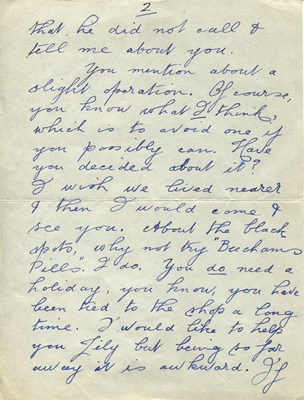 2
that he did not call &
tell me about you.
You mention about a
slight operation. Of course,
you know what I think,
which is to avoid one if
you possibly can. Have
you decided about it?
I wish we lived nearer
& then I would come &
see you. About the black
spots, why not try "Beechams
Pills". I do. You do need a
holiday, you know, you have
been tied to the shop a long
time. I would like to help
you Lily but being so far
away it is awkward. If